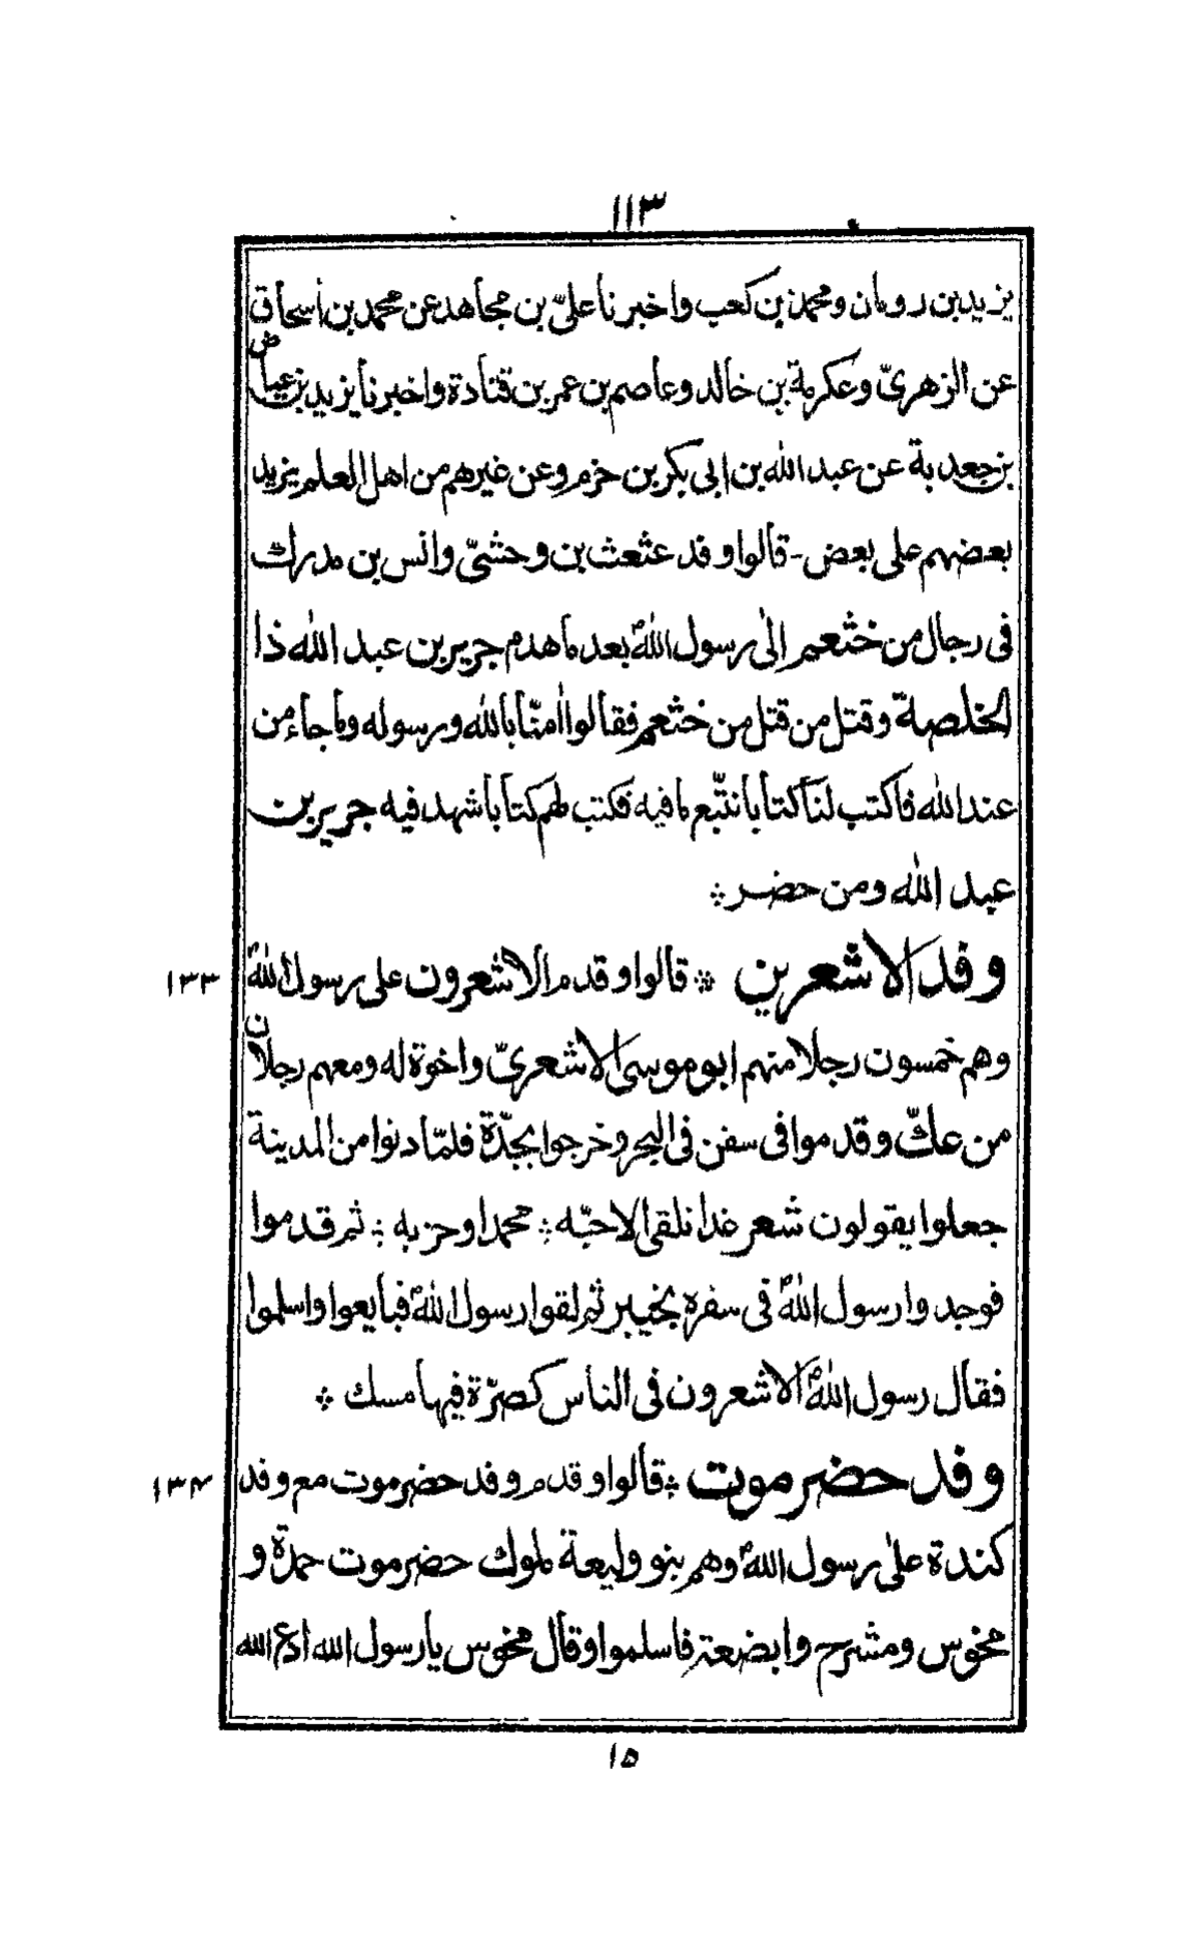 ١١٣
يزيد بن رومان ومحمد بن كعب واخبرنا علىّ بن مجاهد عن محمد بن اسحاق
عن الزهرىّ وعكرمة بن خالد وعاصم بن عمر بن قتادة واخبرنا يزيد بن عياض
بن جعدبة عن عبد الله بن ابى بكر بن حزم وعن غيرهم من اهل العلم يزيد
بعضهم على بعض - قالوا وفد عثعث بن وحشىّ وانس بن مدرك
فى رجال من خثعم الى رسول اللهؐ بعد ما هدم جرير بن عبد الله ذا
الخلصة وقتل من قتل من خثعم فقالوا اٰمنّا بالله ورسوله وما جاء من
عند الله فاكتب لنا كتابا نتّبع ما فيه فكتب لهم كتابا شهد فيه جرير بن
عبد الله ومن حضر ❊
وفد الاشعرين ❊ قالوا وقدم الاشعرون على رسول اللهؐ ١٣٣
وهم خمسون رجلا منهم ابو موسى الاشعرىّ واخوة له ومعهم رجلان
من عكّ وقدموا فى سفن فى البحر وخرجوا بجدّة فلمّا دنوا من المدينة
جعلوا يقولون شعر غدا نلقى الاحبّه ❊ محمدا وحزبه ❊ ثم قدموا
فوجدوا رسول اللهؐ فى سفره بخيبر ثم لقوا رسول اللهؐ فبايعوا واسلموا
فقال رسول اللهؐ الاشعرون فى الناس كصرّة فيها مسك ❊
وفد حضرموت ❊ قالوا وقدم وفد حضرموت مع وفد ١٣٤
كندة على رسول اللهؐ وهم بنو وليعة ملوك حضرموت حمدة و
مخوس ومشرح وابضعة فاسلموا وقال مخوس يا رسول الله ادع الله
١٥